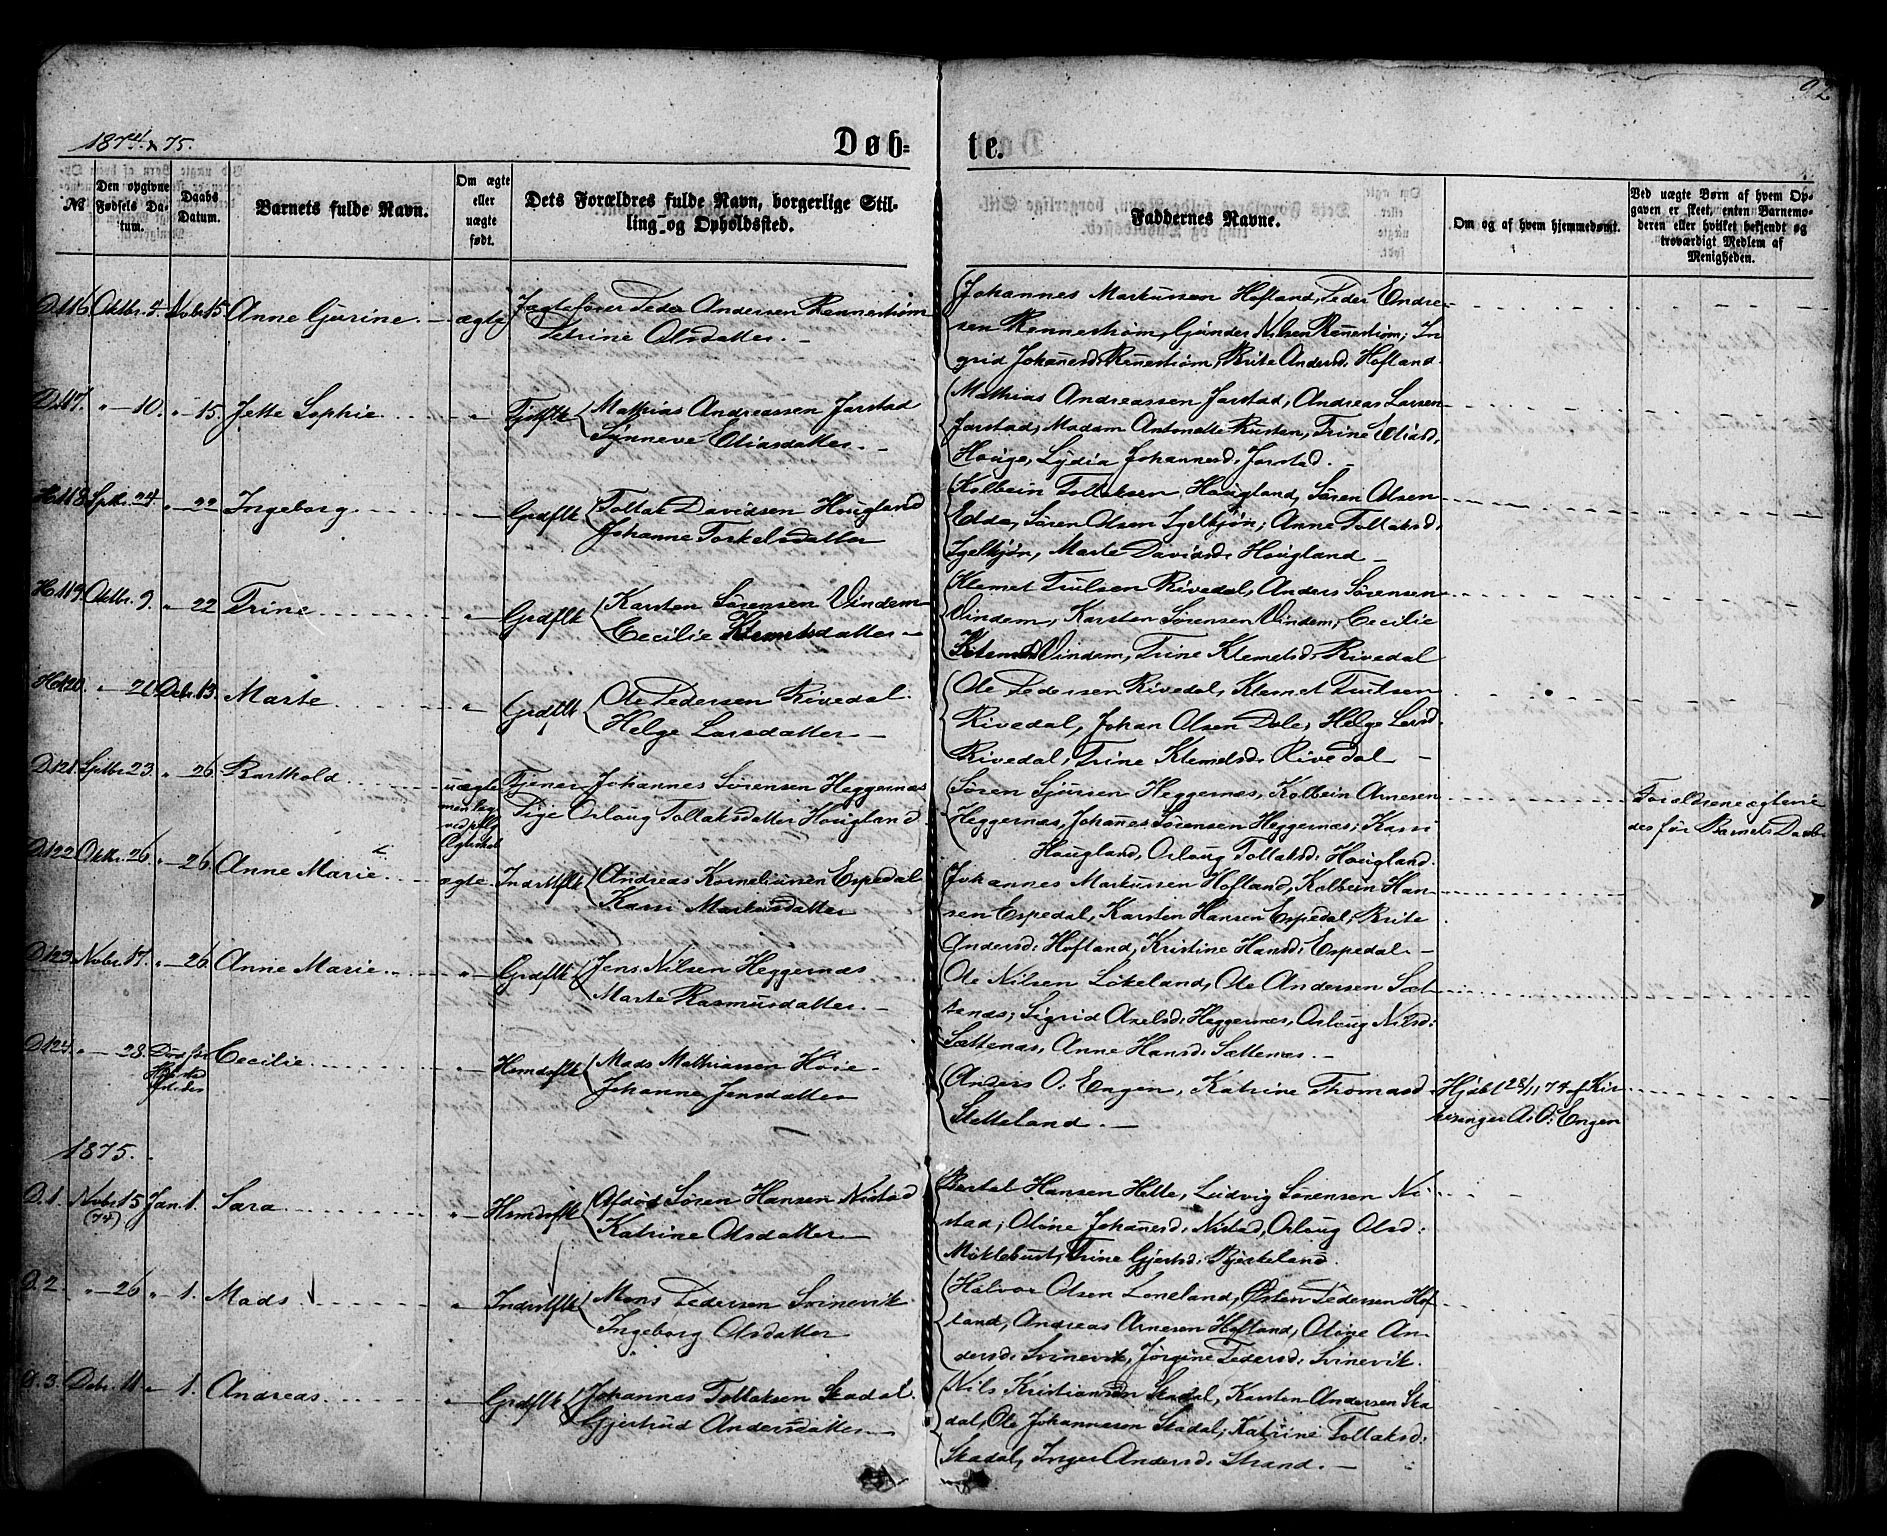 92
1874 & 75.
Døb-
te.
No
Den opgivne Fødsels Datum.
Daabs Datum.
Barnets fulde Navn.
Om ægte eller uægte født.
Dets Forældres fulde Navn, borgerlige Stilling og Opholdssted.
Faddernes Navne.
Om og af hvem hjemmedøbt.
Ved uægte Børn af hvem Opgaven er skeet, enten Barnemoderen eller hvilket bekjendt og troværdigt Medlem af Menigheden.
D.116 Oktbr. 4. Nobr 15 Anne Gurine. ægte Jægtefører Peder Andersen Rennestrøm
Petrine Olsdatter.
Johannes Markussen Hofland, Peder Endre-
sen Rennestrøm, Gunder Nilsen Rennestrøm; In
grid Johanesd. Rennestrøm, Brite Andersd. Hofland.
D.117. " 10. " 15. Jette Sophie " Gjæstg Mathias Andreassen Jarstad
Synneve Eliasdatter.
Mathias Andreassen Jarstad, Andreas Larsen
Jarstad, Madam Antonette Rusten, Trine Eliasd.
Houge, Lydia Johannesd. Jarstad.
H.118 Sptbr. 24. " 22 Ingeborg Grdflk Tollak Davidsen Hougland
Johanne Torkelsdatter
Kolbein Tollaksen Hougland, Søren Olsen
Edde, Søren Olsen Igelkjøn; Anne Tollaksd.
Igelkjøn, Marte Davidsd. Hougland
H.119. Oktbr. 9. " 22 Trine " Grdflk Karsten Sørensen Vindem
Cecilie Klemetsdatter
Klemet Trulsen Rivedal, Anders Sørensen
Vindem, Karsten Sørensen Vindem, Cecilie
Klemetsd. Vindem, Trine Klemetsd. Rivedal
H.120. " 21 Debr. 13. Marte " Grdflk Ole Pedersen Rivedal
Helge Larsdatter
Ole Pedersen Rivedal, Klemet Trulsen
Rivedal, Johan Olsen Dale; Helge Larsd.
Rivedal, Trine Klemetsd. Rivedal
D.121. Sptbr. 23. " 26. Barthold uægte Tjener Johannes Sørensen Heggernæs
Pige Orloug Tollaksdatter Hougland
Søren Sjursen Heggernæs, Kolbein Arnesen
Heggernæs, Johanes Sørensen Heggernæs; Kari
Hougland, Orloug Tollaksd. Hougland.
Forældrene egtevie
des før Barnets Daab
D.122 Oktbr. 26. " 26. Anne Marie ægte. Indrstflk Andreas Korneliussen Espedal
Kari Markusdatter
Johannes Markussen Hofland, Kolbein Han-
sen Espedal, Karsten Hansen Espedal; Brite
Andersd. Hofland, Kristine Hansd. Espedal.
D.123. Nobr. 17. " 26. Anne Marie " Grdflk Jens Nilsen Heggernæs
Marte Rasmusdatter.
Ole Nilsen Løkeland, Ole Andersen Sæt
tenæs; Sigrid Axelsd. Heggernæs, Orloug Nilsd.
Sættenæs, Anne Hansd. Sættenæs.
D.124. " 28. Cecilie Hsmdsflk Mads Mathiassen Høie
Johanne Jensdatter
Anders O. Engen, Katrine Thomasd.
Sletteland.
Hjdbt 28/11 74 af Kir-
kesanger A. O. Engen
1875.
D.1. Nobr. 15 (74) Jan. 1. Sara " Hsmdsflk Afdød Søren Hansen Nistad
Katrine Olsdatter
Bertel Hansen Helle, Ludvig Sørensen Ni
stad; Oline Johanesd. Nistad, Orloug Olsd.
Møklebust, Trine Gjertsd. Kjerteland.
D.2. " 26 " 1. Mads " Indrstflk Mons Pedersen Svinevik
Ingeborg Olsdatter
Halvor Olsen Loneland, Østen Pedersen Hof
land, Andreas Arnesen Hofland, Oline An-
dersd. Svinevik, Jørgine Pedersd. Svinevik.
D.3. Debr. 11 " 1. Andreas " Grdflk Johannes Tollaksen Skadal.
Gjertrud Andersdatter
Nils Kristiansen Skadal, Karsten Andersen Ska
dal, Ole Johannesen Skadal; Katrine Tollaksd.
Skadal, Inger Andersd. Strand.